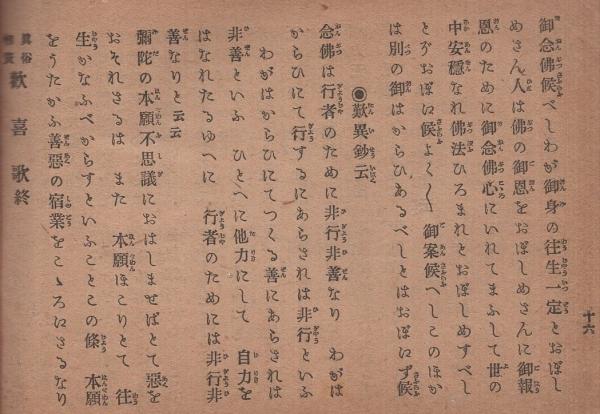 十六
御念佛候べしわが御身の往生一定とおぼし
めさん人は佛の御恩をおぼしめさんに御報
恩のために御念佛心にいれてまふして世の
中安穩なれ佛法ひろまれとおぼしめすべし
とぞおぼい候よく〳〵御案候へしこのほか
は別の御はからひあるべしとはおぼいず候
◉歎異鈔云
念佛は行者のために非行非善なり　わがは
からひにて行するにあらされは非行といふ
わがはからひにてつくる善にあらされは
非善といふ　ひとへに他力にして　自力を
はなれたるゆへに　行者のためには非行非
善なりと云云
彌陀の本願不思議におはしませばとて惡を
おそれさるは　また　本願ほこりとて　往
生かなふべからすといふことこの條　本願
をうたかふ善惡の宿業をこゝろにさるなり
眞俗
歡喜歌終